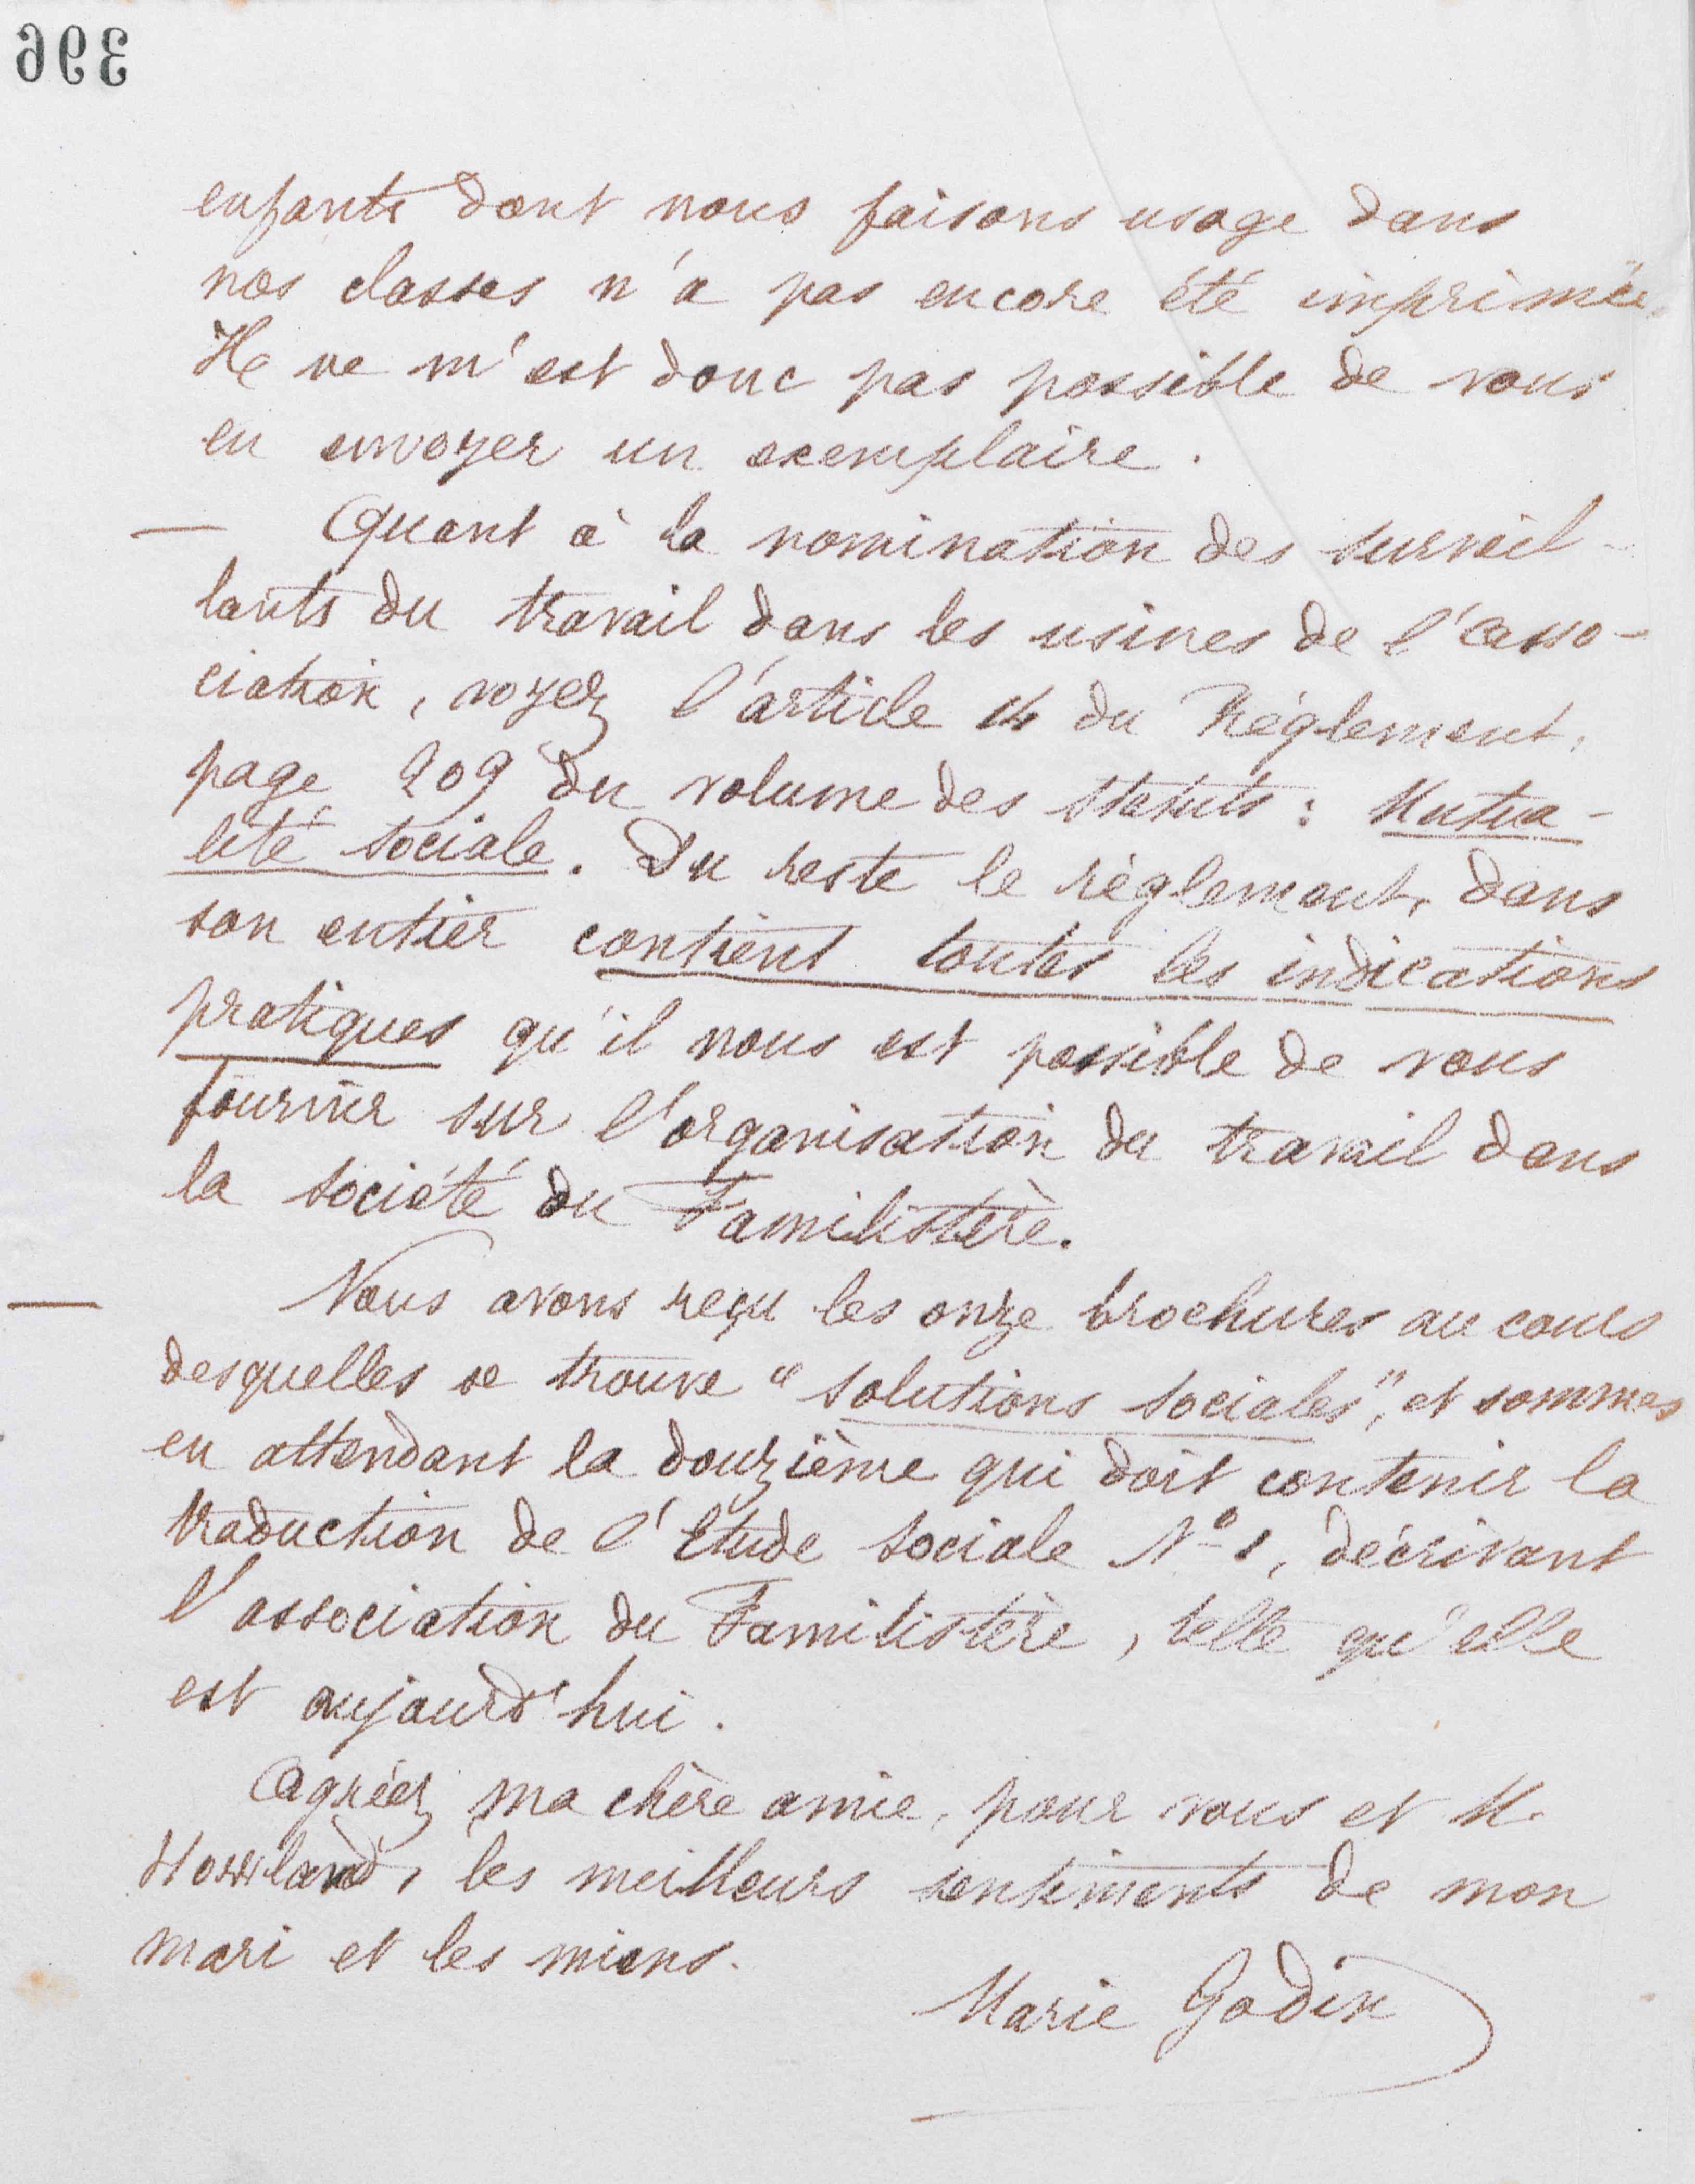 396
enfants dont nous faisons usage dans
nos classes n'a pas encore été imprimée.
Il ne m'est donc pas possible de vous
en envoyer un exemplaire.
— Quant à la nomination des surveil-
lants du travail dans les usines de l'asso-
ciation, voyez l'article 14 du Règlement,
page 209 du volume des statuts : Mutua-
lité sociale. Du reste le règlement, dans
son entier contient toutes les indications
pratiques qu'il nous est possible de vous
fournir sur l'organisation du travail dans
la société du Familistère.
— Nous avons reçu les onze brochures au cours
desquelles se trouve "Solutions sociales", et sommes
en attendant la douzième qui doit contenir la
traduction de l'Etude sociale N° 1, décrivant
l'association du Familistère, telle qu'elle
est aujourd'hui.
Agréez, ma chère amie, pour vous et M.
Howland, les meilleurs sentiments de mon
mari et les miens.
Marie Godin